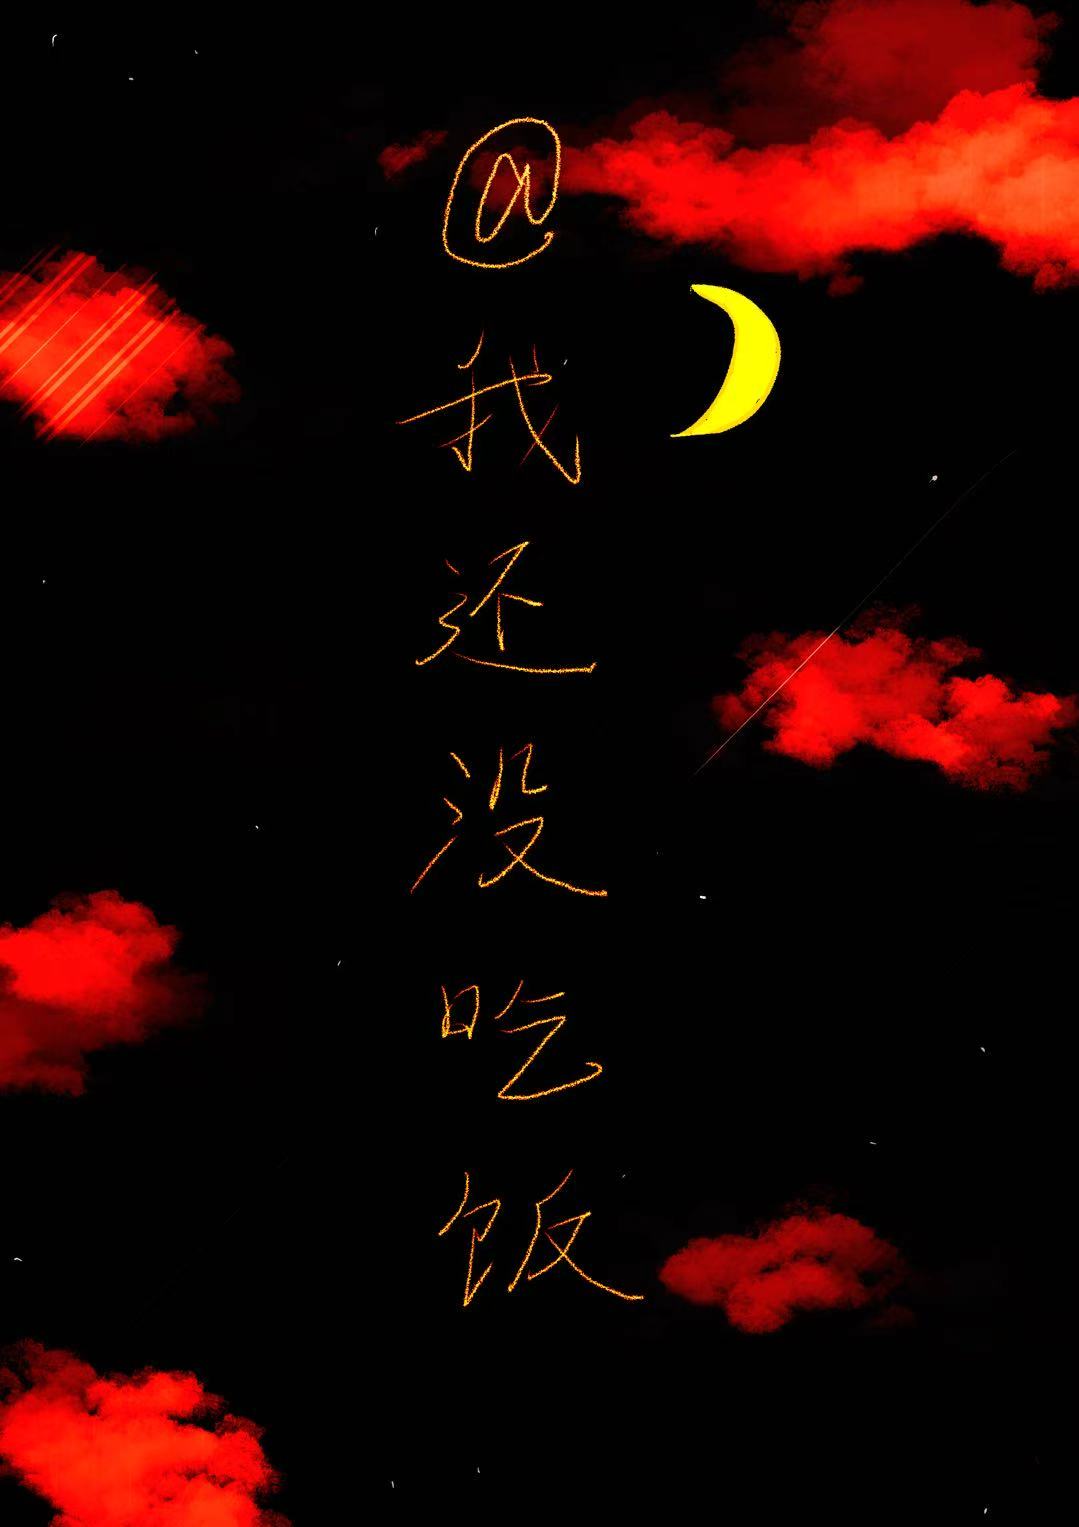 @我还没吃饭